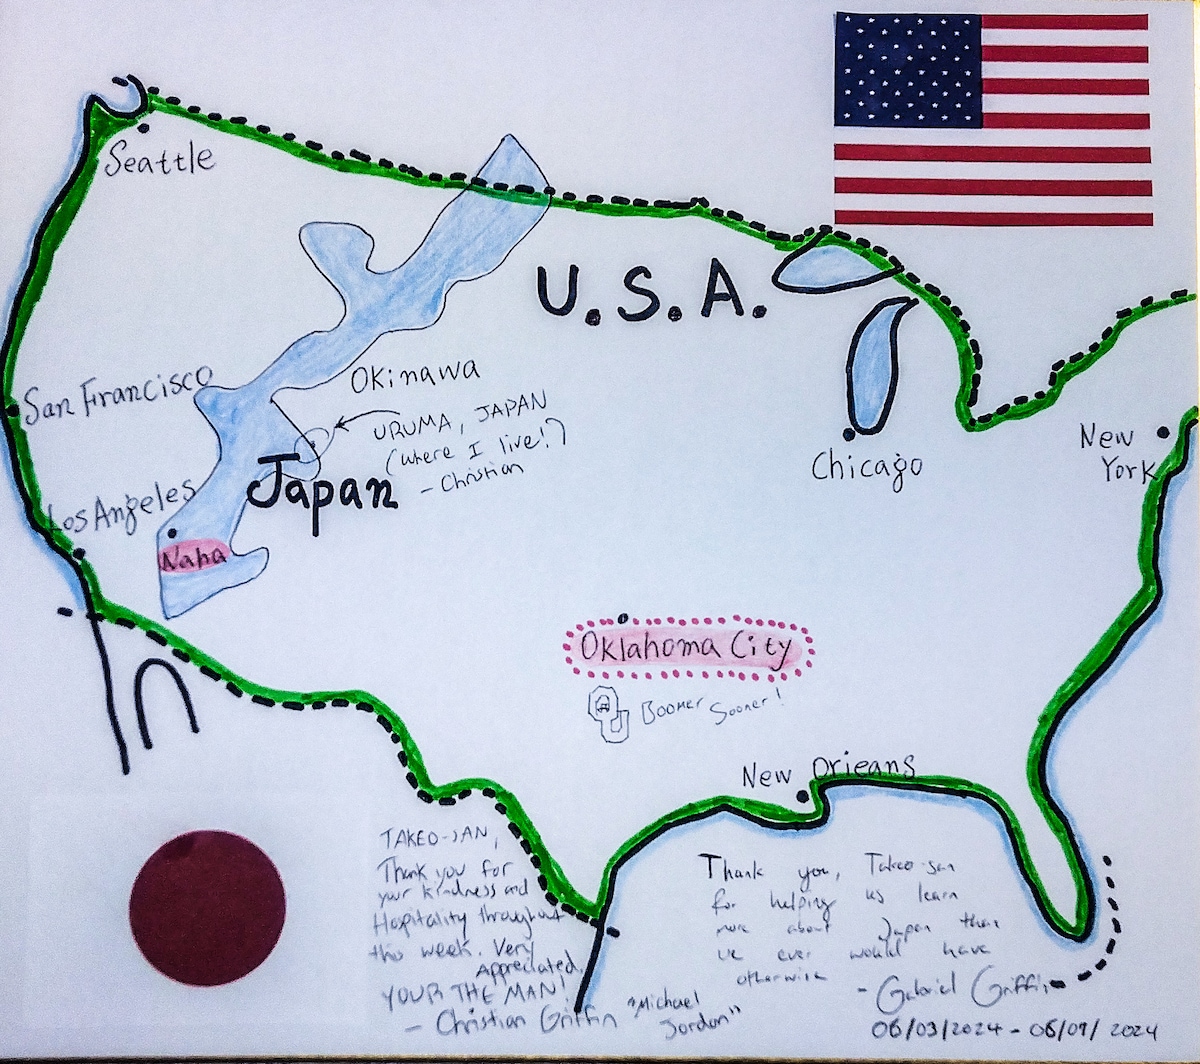 Seattle
U.S.A.
San Francisco
Okinawa
URUMA, JAPAN
(where I live!?)
- Christian
Los Angeles
Japan
Naha
Chicago
New
York
Oklahoma City
OU Boomer Sooner!
New Orleans
TAKEO-SAN,
Thank you for
your kindness and
Hospitality throughout
this week. Very
Appreciated,
YOUR THE MAN!
- Christian Griffin "Michael
Jordon"
Thank you, Takeo-san
for helping us learn
more about Japan than
we ever would have
otherwise
- Gabriel Griffin
06/03/2024 - 06/09/2024